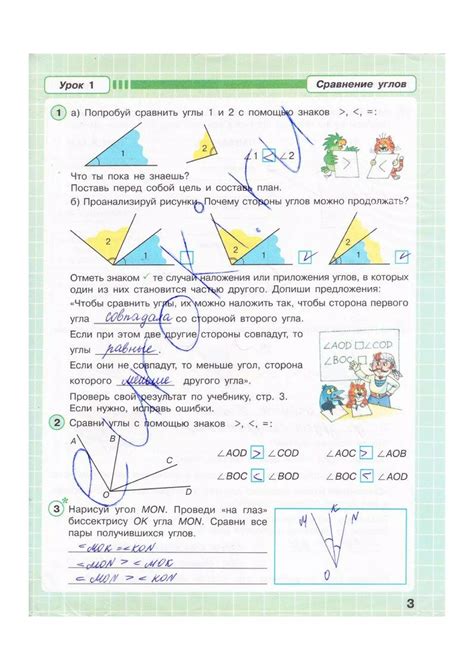 Урок 1
Сравнение углов
1 а) Попробуй сравнить углы 1 и 2 с помощью знаков >, <, =:
1
2
∠1 < ∠2
> <
Что ты пока не знаешь?
Поставь перед собой цель и составь план.
б) Проанализируй рисунки. Почему стороны углов можно продолжать?
2 1
2 1
2 1
Отметь знаком ✓ те случаи наложения или приложения углов, в которых
один из них становится частью другого. Допиши предложения:
«Чтобы сравнить углы, их можно наложить так, чтобы сторона первого
угла совпадала со стороной второго угла.
Если при этом две другие стороны совпадут, то
углы равные.
Если они не совпадут, то меньше угол, сторона
которого меньше другого угла».
∠AOD □ ∠COD
∠BOC □
Проверь свой результат по учебнику, стр. 3.
Если нужно, исправь ошибки.
2 Сравни углы с помощью знаков >, <, =:
A B C O D
∠AOD > ∠COD ∠AOC > ∠AOB
∠BOC > ∠BOC < ∠AOD
3* Нарисуй угол MON. Проведи «на глаз»
биссектрису OK угла MON. Сравни все
пары получившихся углов.
<MOK = <KON
<MON > <MOK
<MON > <KON
M K N
O
3